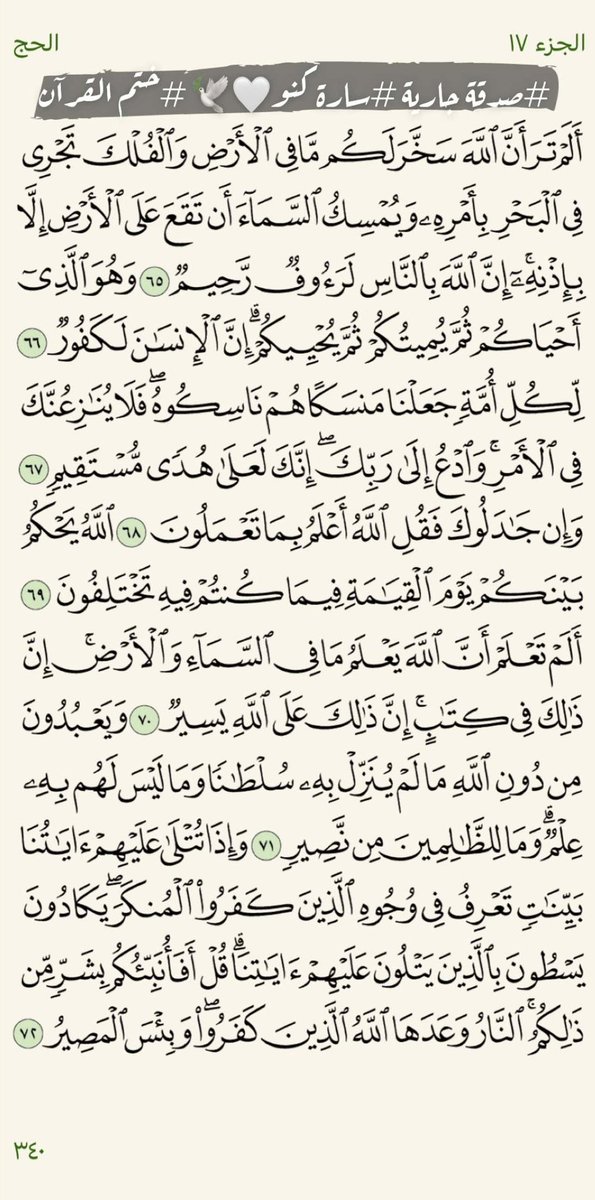 الجزء ١٧
الحج
#صدقة جارية #سارة كنو🤍🕊️ #ختم القرآن
أَلَمۡ تَرَ أَنَّ ٱللَّهَ سَخَّرَ لَكُم مَّا فِي ٱلۡأَرۡضِ وَٱلۡفُلۡكَ تَجۡرِي
فِي ٱلۡبَحۡرِ بِأَمۡرِهِۦ وَيُمۡسِكُ ٱلسَّمَآءَ أَن تَقَعَ عَلَى ٱلۡأَرۡضِ إِلَّا
بِإِذۡنِهِۦٓۚ إِنَّ ٱللَّهَ بِٱلنَّاسِ لَرَءُوفٞ رَّحِيمٞ ٦٥ وَهُوَ ٱلَّذِيٓ
أَحۡيَاكُمۡ ثُمَّ يُمِيتُكُمۡ ثُمَّ يُحۡيِيكُمۡۗ إِنَّ ٱلۡإِنسَٰنَ لَكَفُورٞ ٦٦
لِّكُلِّ أُمَّةٖ جَعَلۡنَا مَنسَكًا هُمۡ نَاسِكُوهُۖ فَلَا يُنَٰزِعُنَّكَ
فِي ٱلۡأَمۡرِۚ وَٱدۡعُ إِلَىٰ رَبِّكَۖ إِنَّكَ لَعَلَىٰ هُدٗى مُّسۡتَقِيمٖ ٦٧
وَإِن جَٰدَلُوكَ فَقُلِ ٱللَّهُ أَعۡلَمُ بِمَا تَعۡمَلُونَ ٦٨ ٱللَّهُ يَحۡكُمُ
بَيۡنَكُمۡ يَوۡمَ ٱلۡقِيَٰمَةِ فِيمَا كُنتُمۡ فِيهِ تَخۡتَلِفُونَ ٦٩
أَلَمۡ تَعۡلَمۡ أَنَّ ٱللَّهَ يَعۡلَمُ مَا فِي ٱلسَّمَآءِ وَٱلۡأَرۡضِۚ إِنَّ
ذَٰلِكَ فِي كِتَٰبٍۚ إِنَّ ذَٰلِكَ عَلَى ٱللَّهِ يَسِيرٞ ٧٠ وَيَعۡبُدُونَ
مِن دُونِ ٱللَّهِ مَا لَمۡ يُنَزِّلۡ بِهِۦ سُلۡطَٰنٗا وَمَا لَيۡسَ لَهُم بِهِۦ
عِلۡمٞۗ وَمَا لِلظَّٰلِمِينَ مِن نَّصِيرٖ ٧١ وَإِذَا تُتۡلَىٰ عَلَيۡهِمۡ ءَايَٰتُنَا
بَيِّنَٰتٖ تَعۡرِفُ فِي وُجُوهِ ٱلَّذِينَ كَفَرُواْ ٱلۡمُنكَرَۖ يَكَادُونَ
يَسۡطُونَ بِٱلَّذِينَ يَتۡلُونَ عَلَيۡهِمۡ ءَايَٰتِنَاۗ قُلۡ أَفَأُنَبِّئُكُم بِشَرّٖ مِّن
ذَٰلِكُمُۚ ٱلنَّارُ وَعَدَهَا ٱللَّهُ ٱلَّذِينَ كَفَرُواْۖ وَبِئۡسَ ٱلۡمَصِيرُ ٧٢
٣٤٠